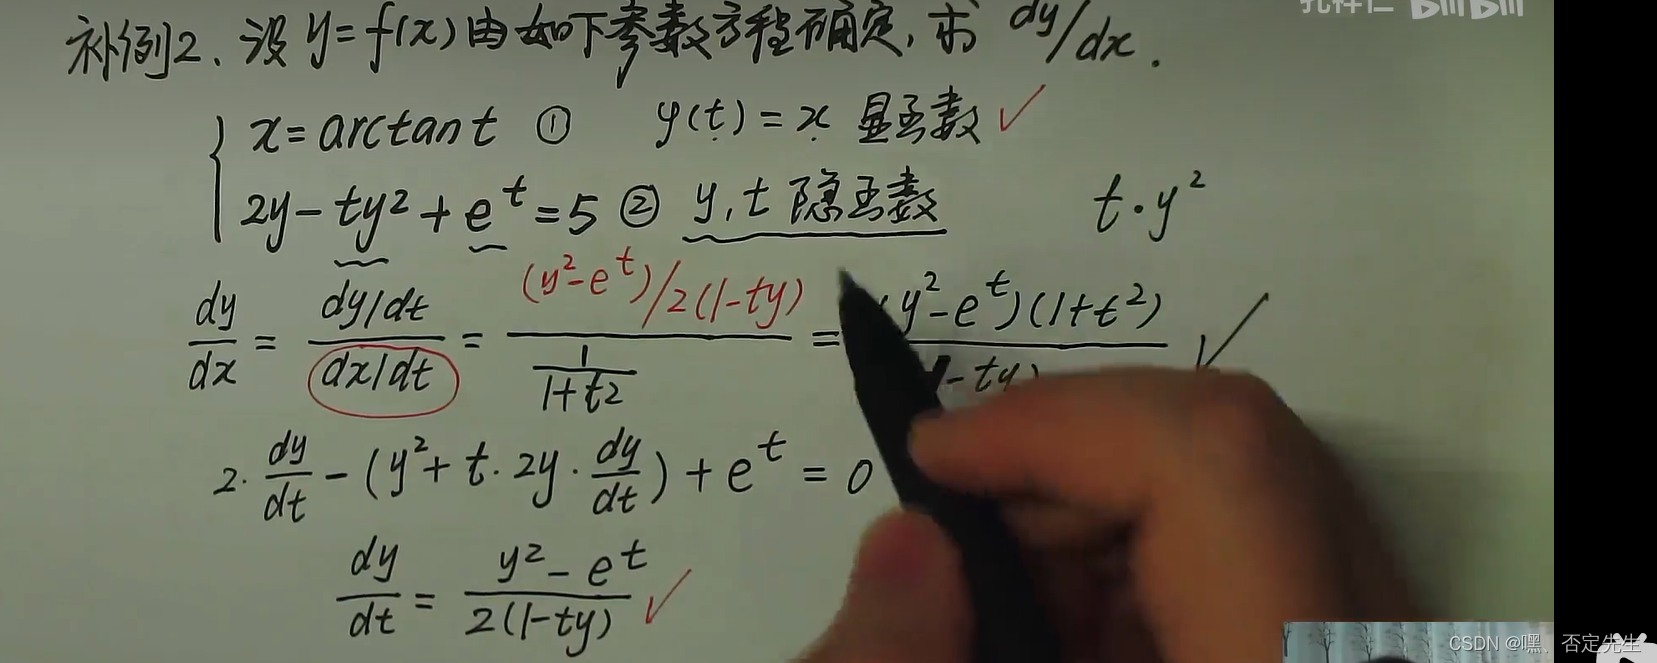 补例2.设 y=f(x)由如下参数方程确定,求 dy/dx.
{ x=arctant ① y(t)=x 显函数 ✓
2y-ty²+e^t=5 ② y,t 隐函数 t·y²
dy/dx = (dy/dt)/(dx/dt) = ((y²-e^t)/2(1-ty))/(1/(1+t²)) = y²-e^t)(1+t²) / -ty) ✓
2·dy/dt-(y²+t·2y·dy/dt)+e^t=0
dy/dt = (y²-e^t)/(2(1-ty)) ✓
CSDN @嘿、否定先生